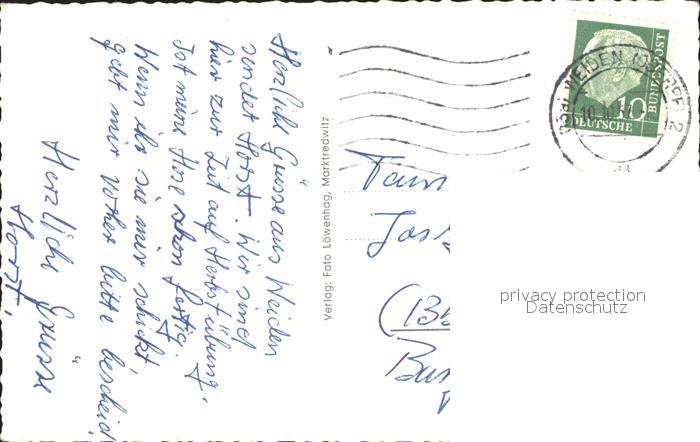 Herzliche Grüsse aus Weiden
sendet Horst. Wir sind
hier zur Zeit auf Herbstübung.
Ist meine Hose schon fertig.
Wenn ihr sie mir schickt
gebt mir vorher bitte bescheid
Herzliche Grüsse
Horst.
Verlag: Foto Löwenhag, Marktredwitz
Fam
Jos
(13b
WEIDEN (OBERPF) 2
10
DEUTSCHE
BUNDESPOST
privacy protection
Datenschutz